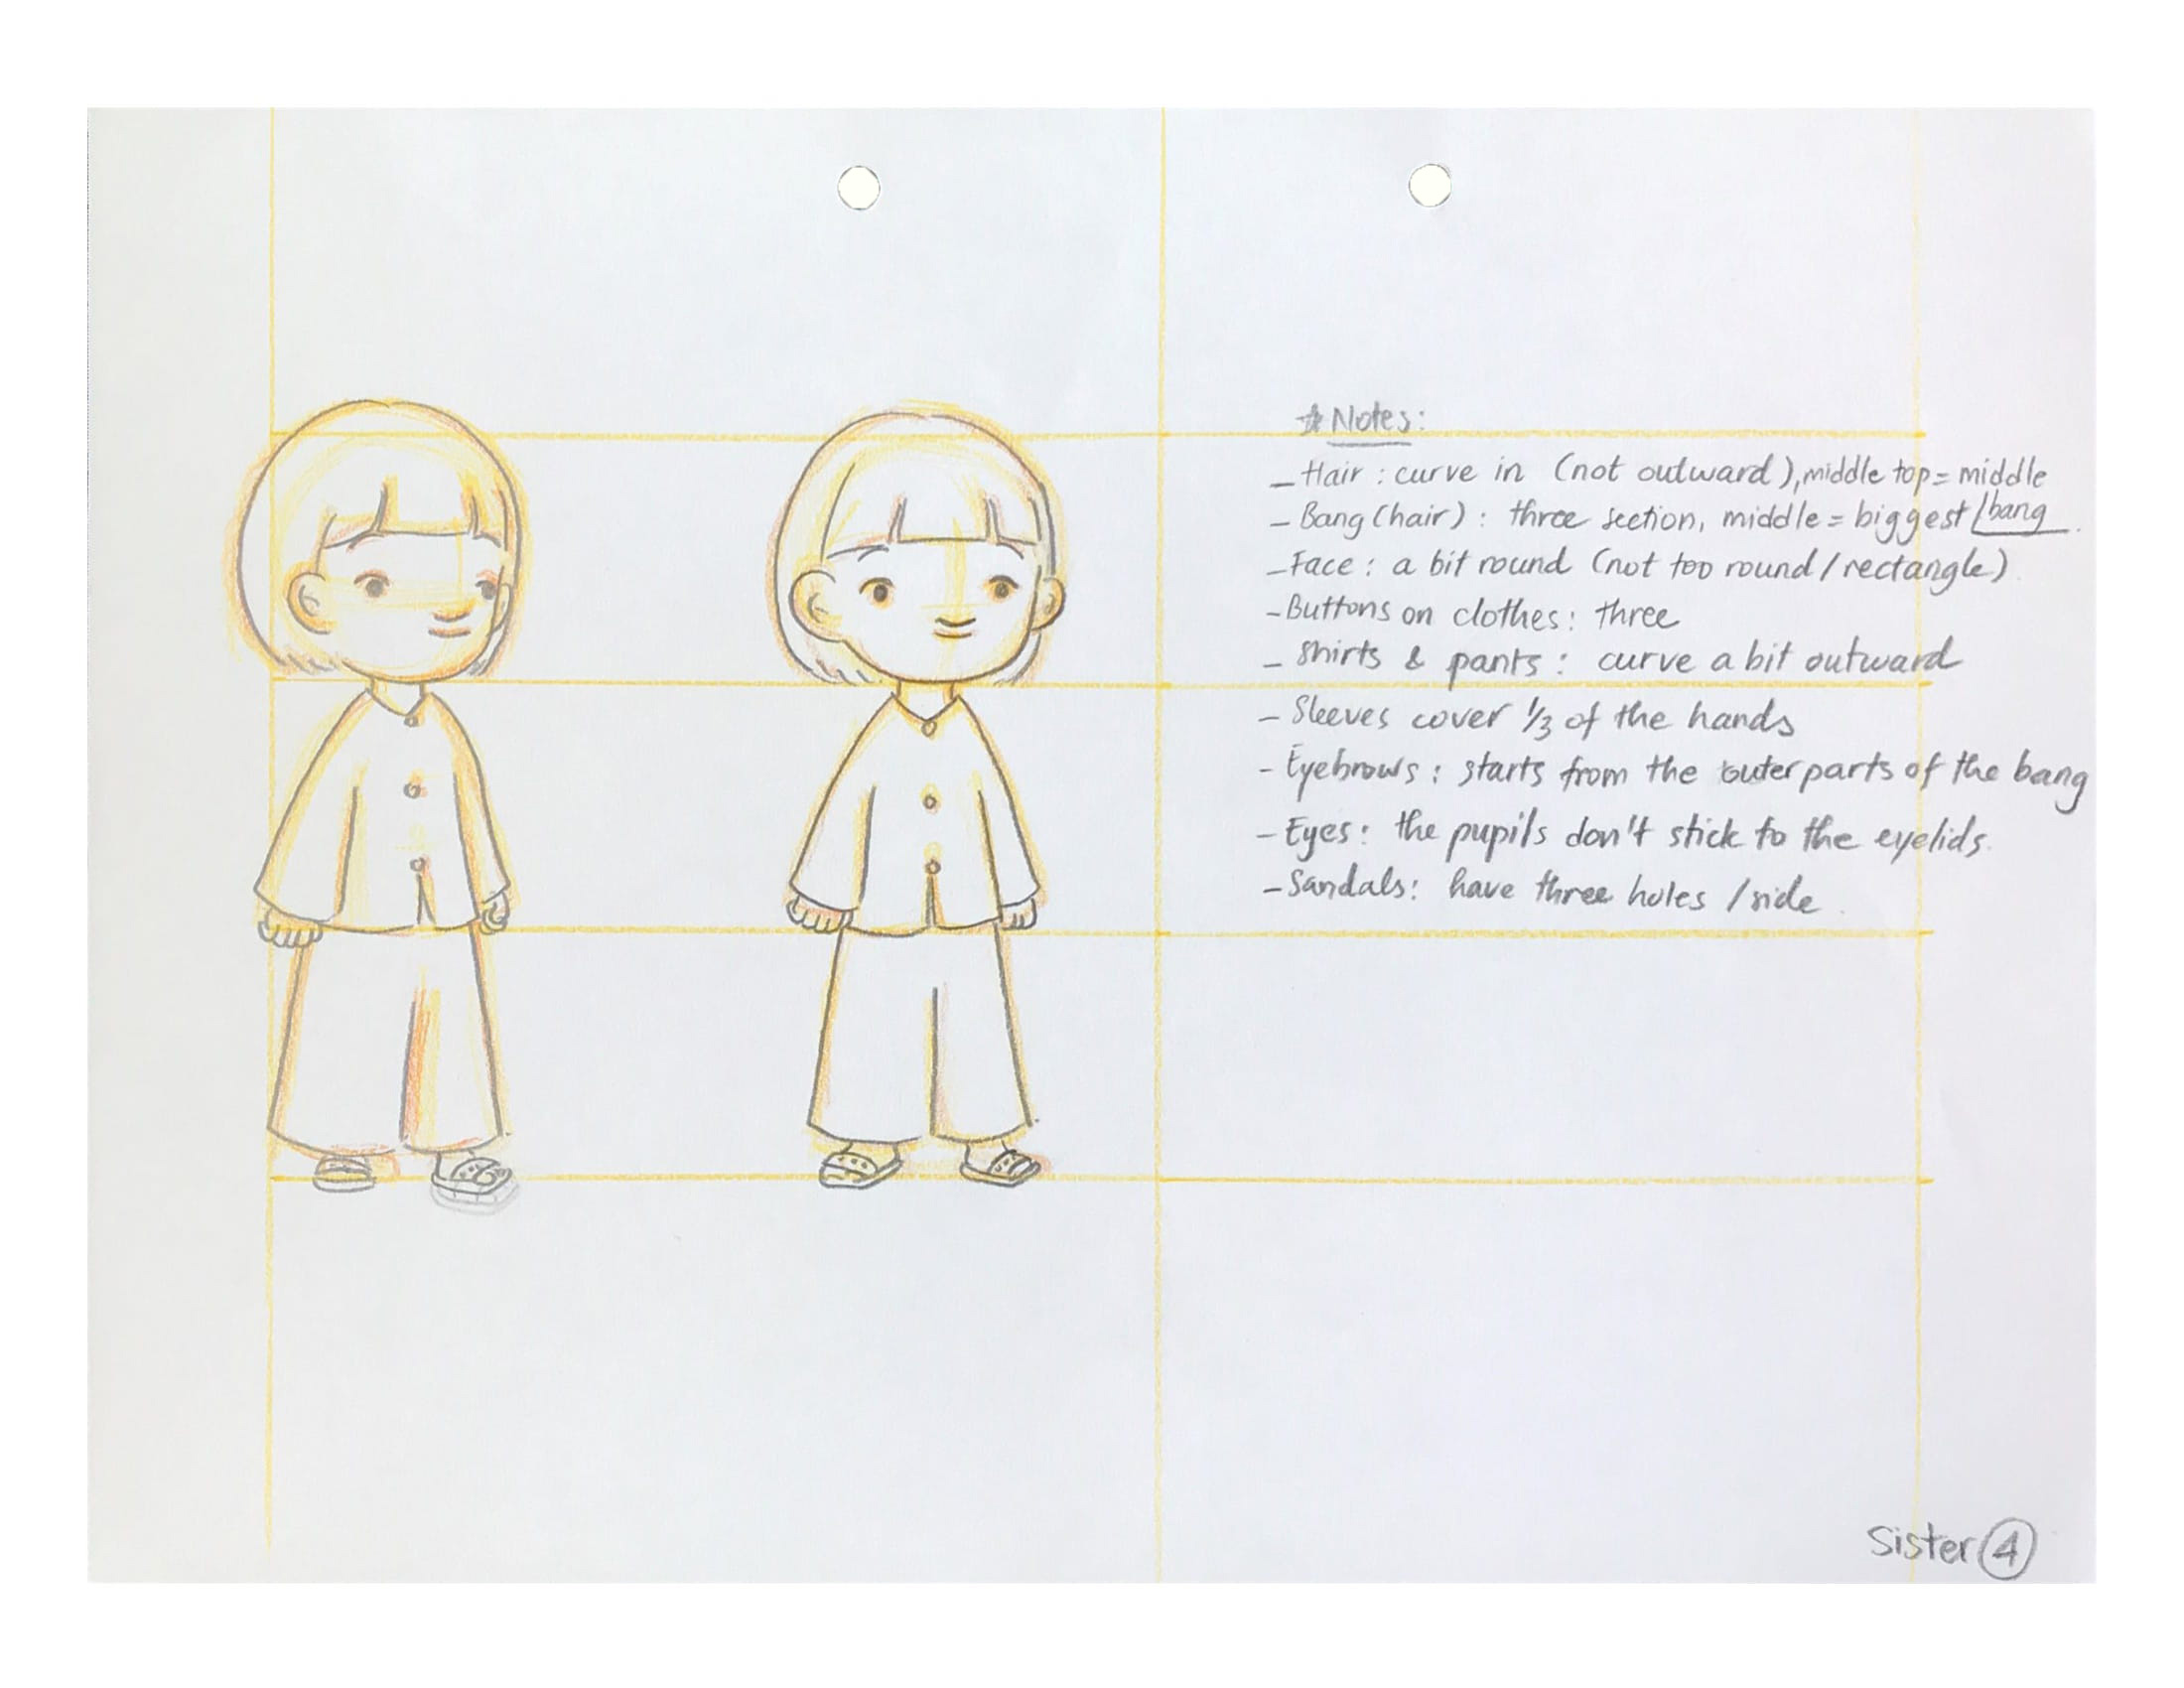 ☆ Notes:
- Hair : curve in (not outward), middle top = middle bang
- Bang (hair) : three section, middle = biggest
- Face : a bit round (not too round / rectangle)
- Buttons on clothes : three
- Shirts & pants : curve a bit outward
- Sleeves cover 1/3 of the hands
- Eyebrows : starts from the outer parts of the bang
- Eyes : the pupils don't stick to the eyelids.
- Sandals : have three holes / side
Sister 4